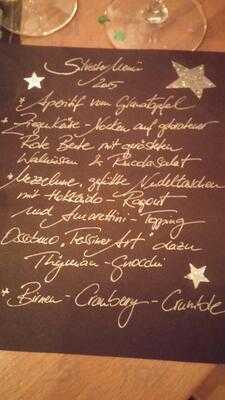 Silvester Menü
2015
* Aperitif vom Granatapfel
* Ziegenkäse-Nocken auf gebratener
Rote Beete mit gerösteten
Walnüssen & Rucolasalat
* Mezzelune, gefüllte Nudeltaschen
mit Hokkaido-Ragout
und Amarettini-Topping
Ossobuco „Tessiner Art" dazu
Thymian-Gnocchi
* Birnen-Cranberry-Crumble